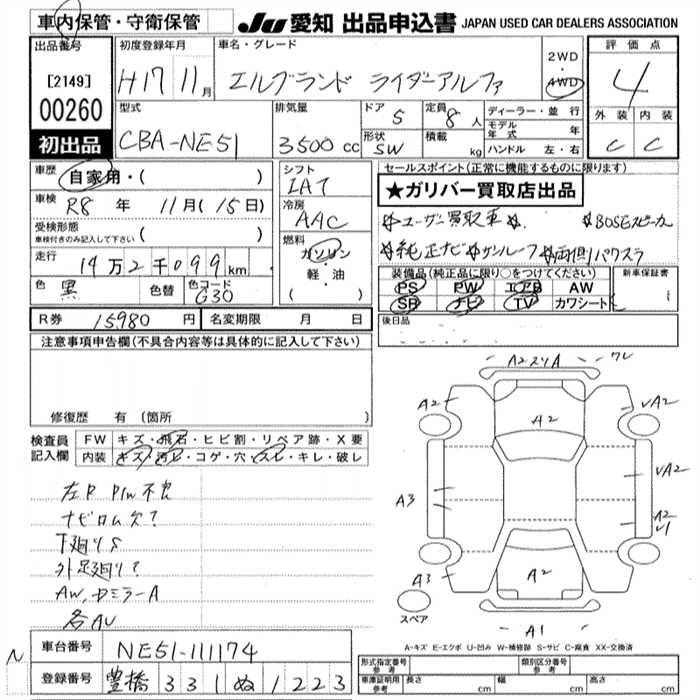 車内保管・守衛保管 JU 愛知 出品申込書 JAPAN USED CAR DEALERS ASSOCIATION
出品番号 [2149] 00260 初出品
初度登録年月 H17 11月
車名・グレード エルグランド ライダーアルファ 2WD・4WD
評価点 4
外装 C 内装 C
型式 CBA-NE51
排気量 3500cc
ドア 5 定員 8人
形状 SW 積載 kg
ディーラー・並行
モデル年式 年
ハンドル 左・右
車歴 自家用・( )
車検 R8年 11月(15日)
受検形態 車検付きのみ記入して下さい ( )
走行 14万2千099km
色 黒 色替 色コード G30
シフト IAT
冷房 AAC
燃料 ガソリン・軽・油 ( )
セールスポイント(正常に機能するものに限ります)
★ガリバー買取店出品
☆ユーザー買取車☆ ☆BOSEスピーカー
☆純正ナビ☆サンルーフ☆両側パワスラ
装備品(純正品に限り○をつけてください) 新車保証書
PS PW エアB AW
SR ナビ TV カワシート
後日品
R券 15980円 名変期限 月 日
注意事項申告欄(不具合内容等は具体的に記入して下さい)
修復歴 有 (箇所 )
検査員記入欄
FW キズ・飛石・ヒビ割・リペア跡・X要
内装 キズ・汚レ・コゲ・穴・スレ・キレ・破レ
左R P/W不良
ナビロム欠?
下廻りS
外足廻り?
AW,ドミラーA
各AU
A2スリA ワレ
A2 A2 √A2
A3 √A2
A2 √1
A3 A2
スペア
A1
A-キズ E-エクボ U-凹み W-補修跡 S-サビ C-腐食 XX-交換済
N
車台番号 NE51-111174
登録番号 豊橋 331 ぬ 1223
形式指定番号 参考 類別区分番号 参考
車庫証明用 参考 長さ cm 幅 cm 高さ cm